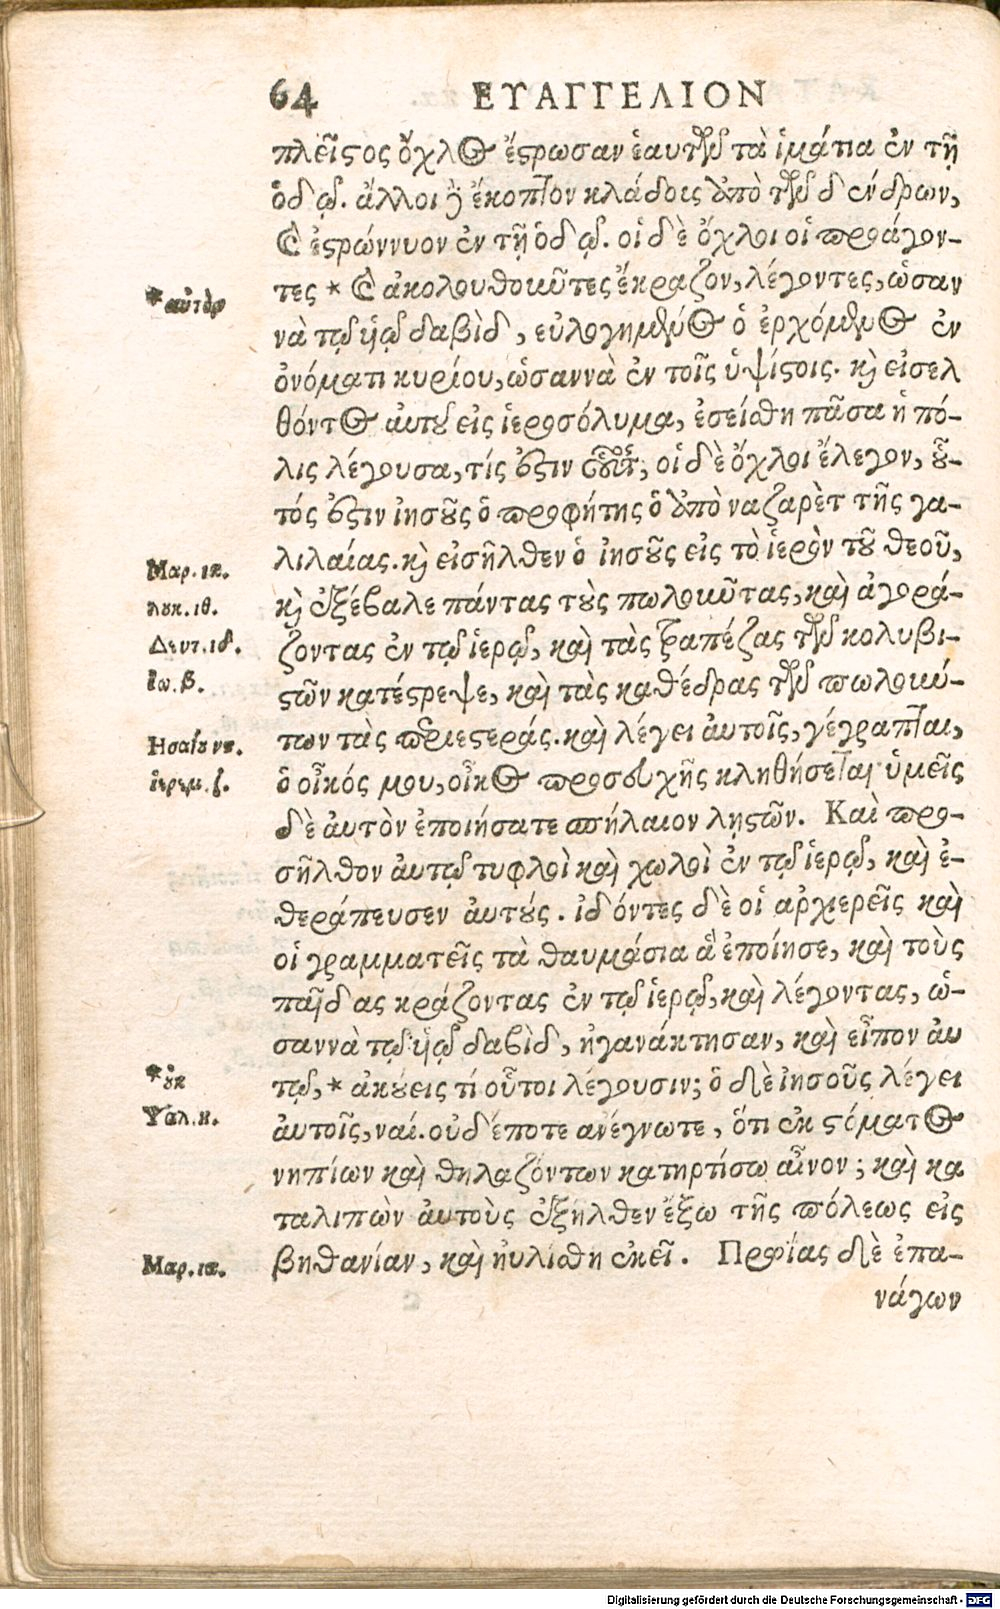 64 ΕΥΑΓΓΕΛΙΟΝ
πλεῖστος ὄχλος ἔστρωσαν ἑαυτῶν τὰ ἱμάτια ἐν τῇ
ὁδῷ. ἄλλοι δὲ ἔκοπτον κλάδους ἀπὸ τῶν δένδρων,
καὶ ἐστρώννυον ἐν τῇ ὁδῷ. οἱ δὲ ὄχλοι οἱ προάγον-
τες * καὶ ἀκολουθοῦντες ἔκραζον, λέγοντες, ὡσαν
*αὐτὸν
νὰ τῷ ὑιῷ δαβὶδ, εὐλογημένος ὁ ἐρχόμενος ἐν
ὀνόματι κυρίου, ὡσαννὰ ἐν τοῖς ὑψίστοις. καὶ εἰσελ
θόντος ἀυτοῦ εἰς ἱεροσόλυμα, ἐσείσθη πᾶσα ἡ πό-
λις λέγουσα, τίς ἐστιν οὗτος; οἱ δὲ ὄχλοι ἔλεγον, οὗ-
τός ἐστιν ἰησοῦς ὁ προφήτης ὁ ἀπὸ ναζαρὲτ τῆς γα-
λιλαίας. καὶ εἰσῆλθεν ὁ ἰησοῦς εἰς τὸ ἱερὸν τοῦ θεοῦ,
Μαρ. ια.
καὶ ἐξέβαλε πάντας τοὺς πωλοῦντας, καὶ ἀγορά-
λουκ. ιθ.
ζοντας ἐν τῷ ἱερῷ, καὶ τὰς τραπέζας τῶν κολυβι-
Δευτ. ιδ.
στῶν κατέστρεψε, καὶ τὰς καθέδρας τῶν πωλούν-
ἰω. β.
των τὰς περιστεράς. καὶ λέγει ἀυτοῖς, γέγραπται,
Ησαΐου νς.
ὁ οἶκός μου, οἶκος προσευχῆς κληθήσεται· ὑμεῖς
ἱερεμ. ζ.
δὲ ἀυτὸν ἐποιήσατε σπήλαιον λῃστῶν. Καὶ προ-
σῆλθον ἀυτῷ τυφλοὶ καὶ χωλοὶ ἐν τῷ ἱερῷ, καὶ ἐ-
θεράπευσεν ἀυτούς. ἰδόντες δὲ οἱ ἀρχιερεῖς καὶ
οἱ γραμματεῖς τὰ θαυμάσια ἃ ἐποίησε, καὶ τοὺς
παῖδας κράζοντας ἐν τῷ ἱερῷ, καὶ λέγοντας, ὡ-
σαννὰ τῷ ὑιῷ δαβὶδ, ἠγανάκτησαν, καὶ εἶπον ἀυ
τῷ, * ἀκούεις τί οὗτοι λέγουσιν; ὁ δὲ ἰησοῦς λέγει
*οὐκ
ἀυτοῖς, ναί. οὐδέποτε ἀνέγνωτε, ὅτι ἐκ στόματος
Ψαλ. η.
νηπίων καὶ θηλαζόντων κατηρτίσω αἶνον; καὶ κα
ταλιπὼν ἀυτοὺς ἐξῆλθεν ἔξω τῆς πόλεως εἰς
βηθανίαν, καὶ ηὐλίσθη ἐκεῖ. Πρωΐας δὲ ἐπα-
Μαρ. ια.
νάγων
Digitalisierung gefördert durch die Deutsche Forschungsgemeinschaft - DFG